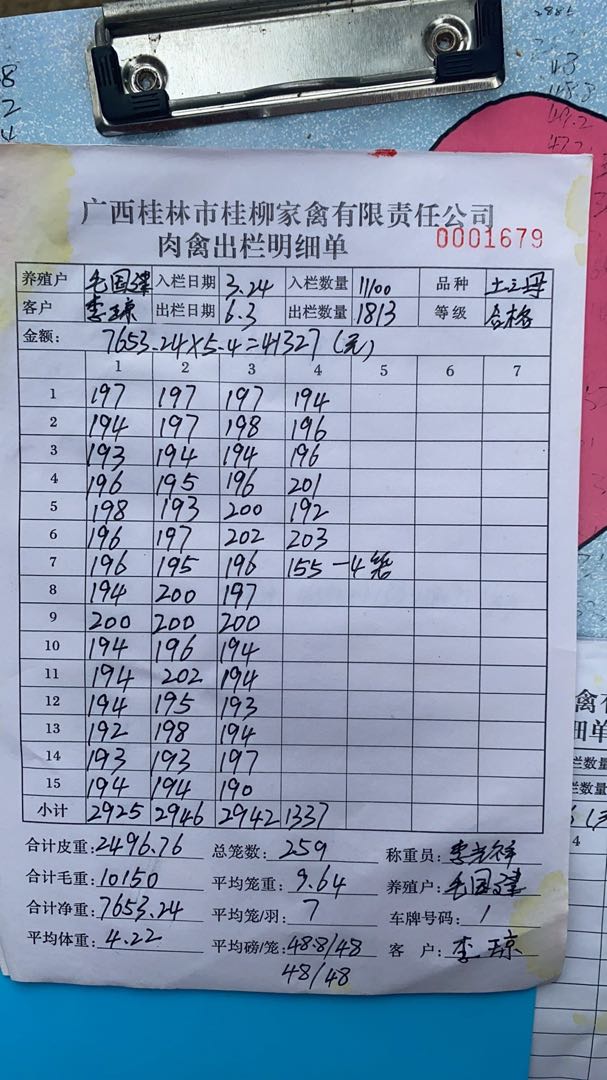 广西桂林市桂柳家禽有限责任公司
肉禽出栏明细单 0001679
养殖户 毛国建 入栏日期 3.24 入栏数量 1100 品种 土之丹
客户 李琼 出栏日期 6.3 出栏数量 1813 等级 合格
金额: 7653.24×5.4=41327(元)
1 2 3 4 5 6 7
1 197 197 197 194
2 194 197 198 196
3 193 194 194 196
4 196 195 196 201
5 198 193 200 192
6 196 197 202 203
7 196 195 196 155-4笼
8 194 200 197
9 200 200 200
10 194 196 194
11 194 202 194
12 194 195 193
13 192 198 194
14 193 193 197
15 194 194 190
小计 2925 2946 2942 1337
合计皮重: 2496.76 总笼数: 259 称重员:
合计毛重: 10150 平均笼重: 9.64 养殖户: 毛国建
合计净重: 7653.24 平均笼/羽: 7 车牌号码: 1
平均体重: 4.22 平均磅/笼: 48.8/48 客户: 李琼
48/48